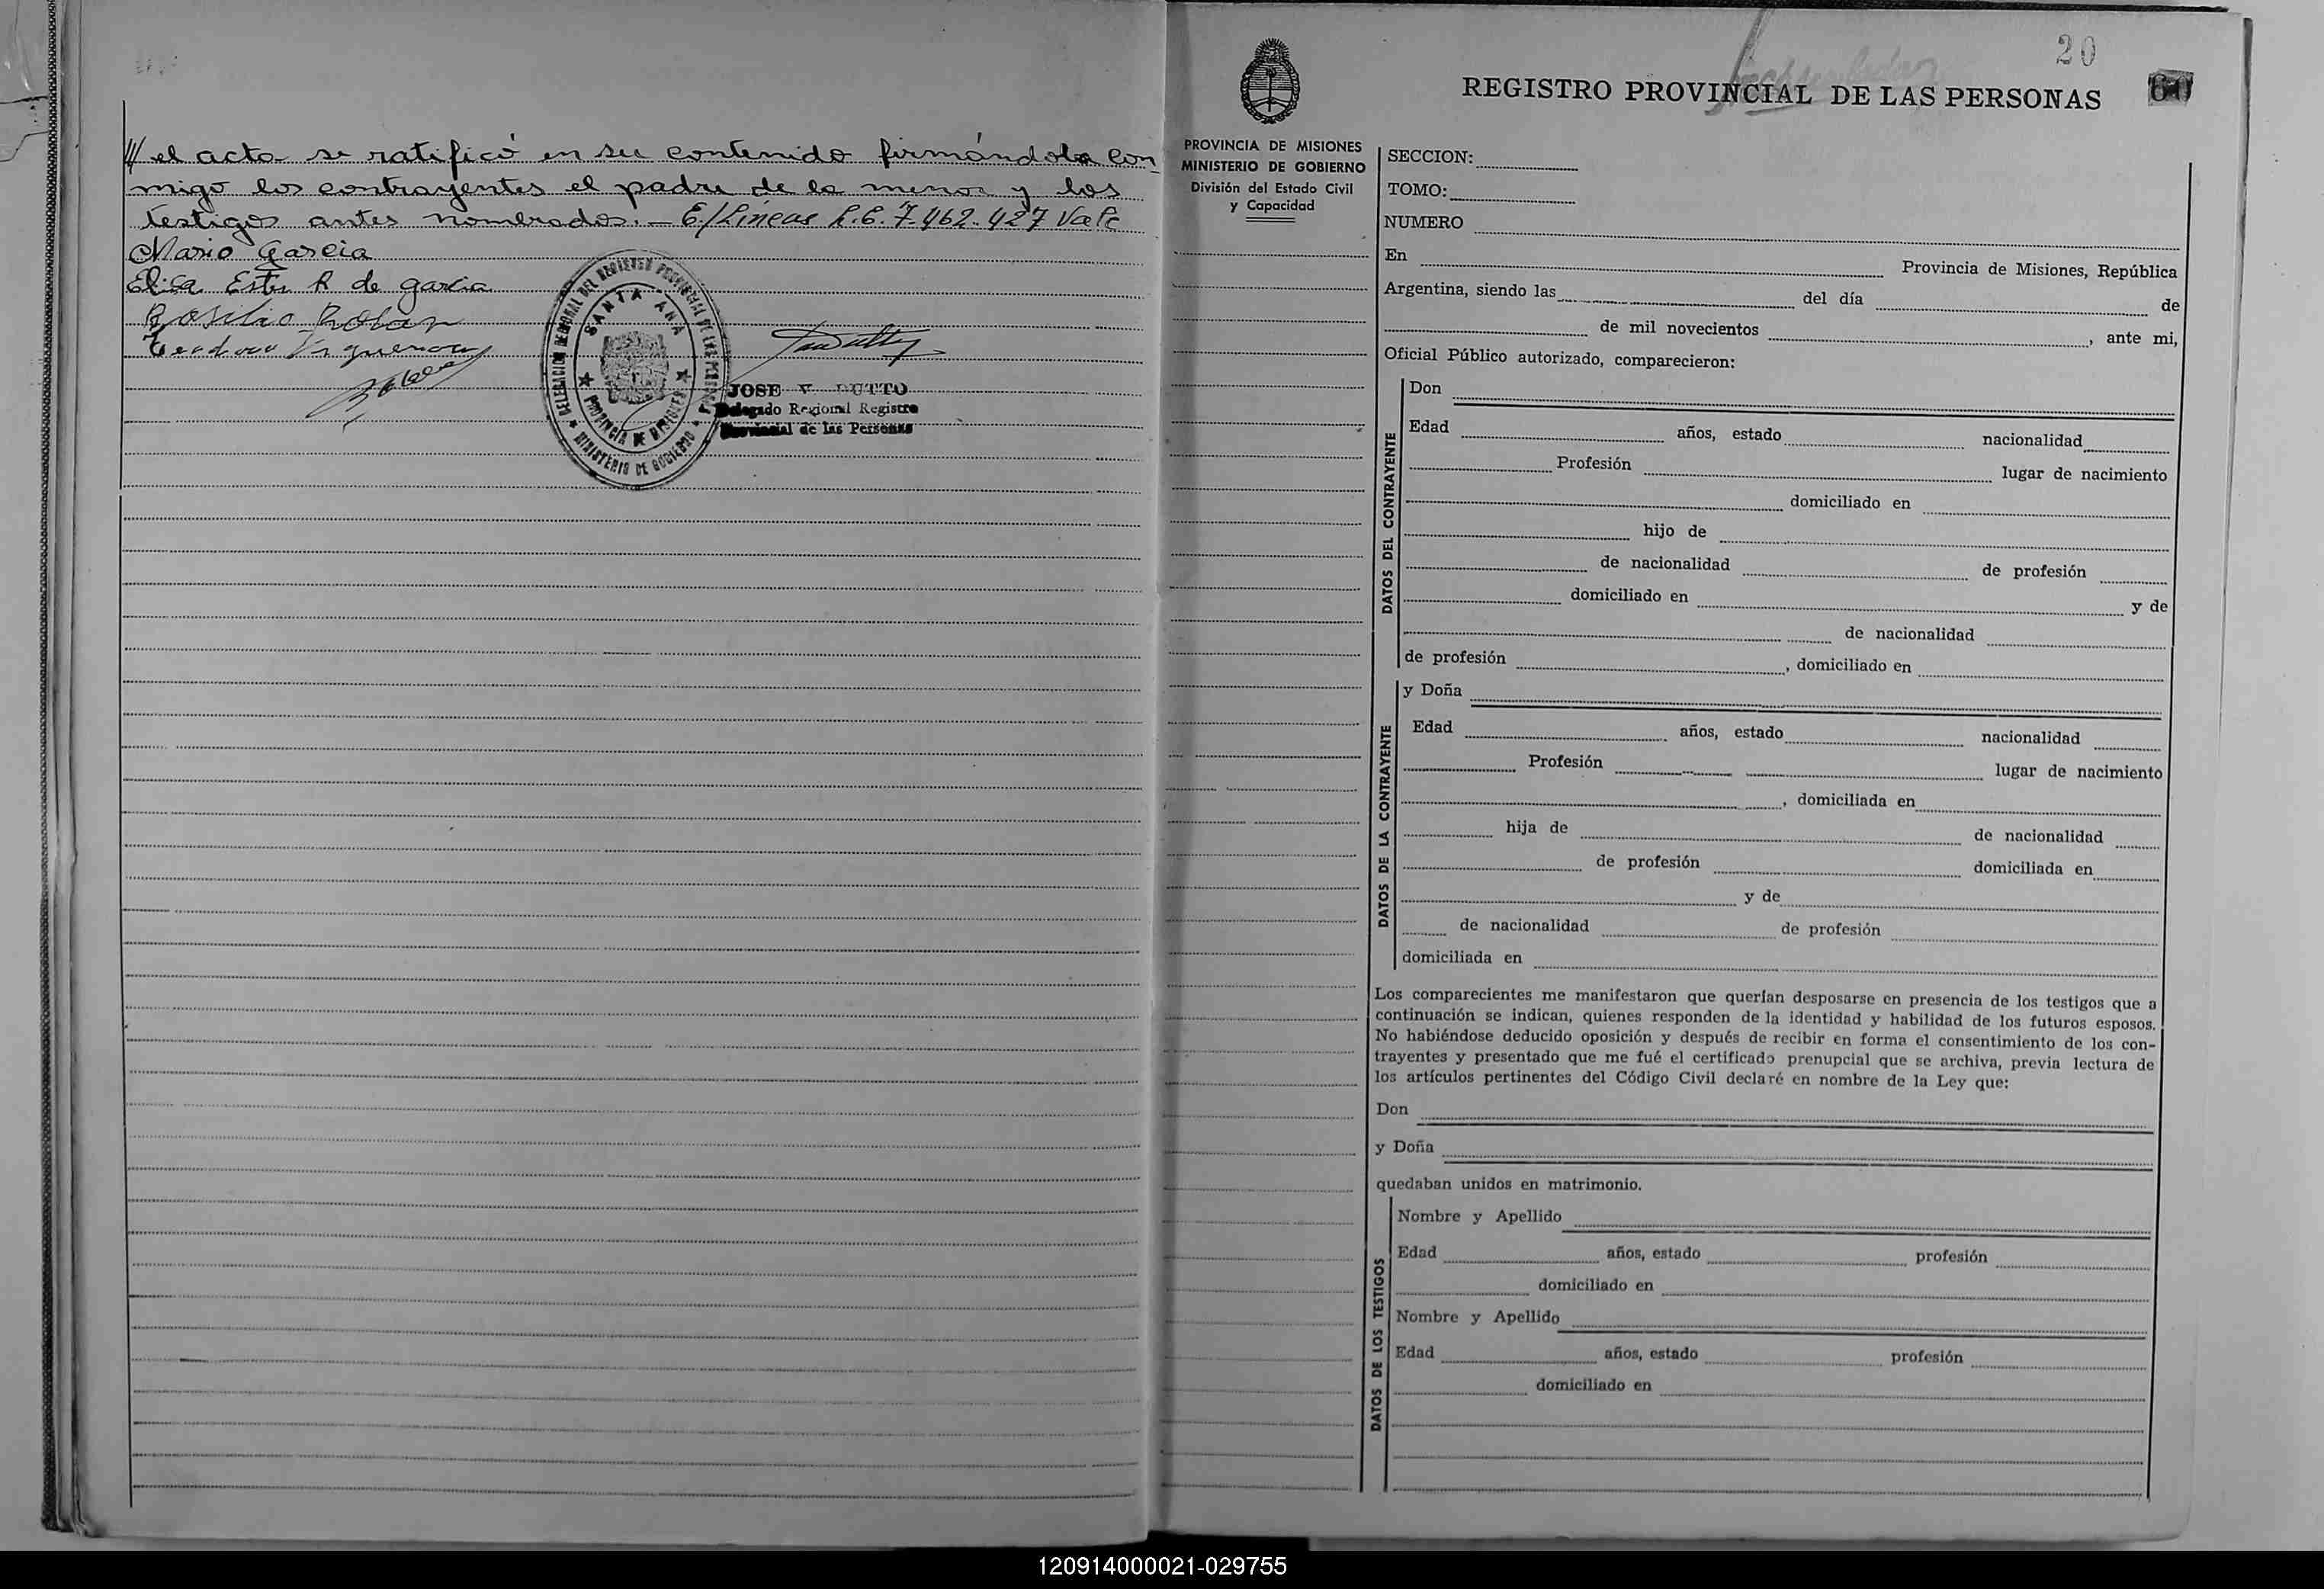 /// el acta se ratificó en su contenido firmándola con
migo los contrayentes el padre de la menor y los
testigos antes nombrados. — E/Líneas L.C. 7.462.427 Vale
Mario Garcia
Elisa Ester R de garcia
JOSE V. DUTTO
Delegado Regional Registro
Provincial de las Personas
DELEGACION REGIONAL DEL REGISTRO PROVINCIAL DE LAS PERSONAS
SANTA ANA
PROVINCIA DE MISIONES
MINISTERIO DE GOBIERNO
20
REGISTRO PROVINCIAL DE LAS PERSONAS
60
PROVINCIA DE MISIONES
MINISTERIO DE GOBIERNO
División del Estado Civil
y Capacidad
SECCION:
TOMO:
NUMERO
En Provincia de Misiones, República
Argentina, siendo las del día de
de mil novecientos , ante mi,
Oficial Público autorizado, comparecieron:
DATOS DEL CONTRAYENTE
Don
Edad años, estado nacionalidad
Profesión lugar de nacimiento
domiciliado en
hijo de
de nacionalidad de profesión
domiciliado en y de
de nacionalidad
de profesión , domiciliado en
DATOS DE LA CONTRAYENTE
y Doña
Edad años, estado nacionalidad
Profesión lugar de nacimiento
, domiciliada en
hija de de nacionalidad
de profesión domiciliada en
y de
de nacionalidad de profesión
domiciliada en
Los comparecientes me manifestaron que querían desposarse en presencia de los testigos que a
continuación se indican, quienes responden de la identidad y habilidad de los futuros esposos.
No habiéndose deducido oposición y después de recibir en forma el consentimiento de los con-
trayentes y presentado que me fué el certificado prenupcial que se archiva, previa lectura de
los artículos pertinentes del Código Civil declaré en nombre de la Ley que:
Don
y Doña
quedaban unidos en matrimonio.
DATOS DE LOS TESTIGOS
Nombre y Apellido
Edad años, estado profesión
domiciliado en
Nombre y Apellido
Edad años, estado profesión
domiciliado en
120914000021-029755